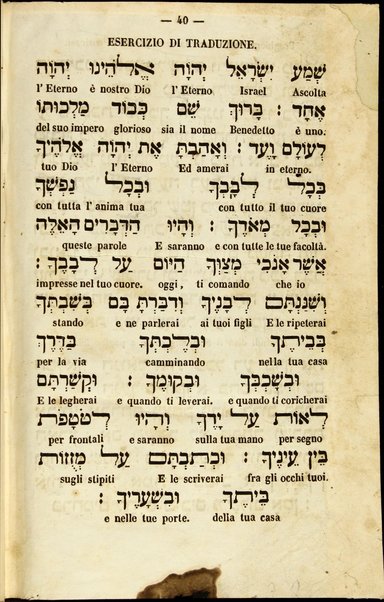 — 40 —
ESERCIZIO DI TRADUZIONE.
שְׁמַע יִשְׂרָאֵל יְהוָֹה אֱלֹהֵינוּ יְהוָֹה
l'Eterno è nostro Dio l'Eterno Israel Ascolta
אֶחָד : בָּרוּךְ שֵׁם כְּבוֹד מַלְכוּתוֹ
del suo impero glorioso sia il nome Benedetto è uno.
לְעוֹלָם וָעֶד : וְאָהַבְתָּ אֶת יְהוָֹה אֱלֹהֶיךָ
tuo Dio l'Eterno Ed amerai in eterno.
בְּכָל לְבָבְךָ וּבְכָל נַפְשְׁךָ
con tutta l'anima tua con tutto il tuo cuore
וּבְכָל מְאֹדֶךָ : וְהָיוּ הַדְּבָרִים הָאֵלֶּה
queste parole E saranno e con tutte le tue facoltà.
אֲשֶׁר אָנֹכִי מְצַוְּךָ הַיּוֹם עַל לְבָבֶךָ :
impresse nel tuo cuore. oggi, ti comando che io
וְשִׁנַּנְתָּם לְבָנֶיךָ וְדִבַּרְתָּ בָּם בְּשִׁבְתְּךָ
stando e ne parlerai ai tuoi figli E le ripeterai
בְּבֵיתֶךָ וּבְלֶכְתְּךָ בַדֶּרֶךְ
per la via camminando nella tua casa
וּבְשָׁכְבְּךָ וּבְקוּמֶךָ : וּקְשַׁרְתָּם
E le legherai e quando ti leverai. e quando ti coricherai
לְאוֹת עַל יָדֶךָ וְהָיוּ לְטֹטָפֹת
per frontali e saranno sulla tua mano per segno
בֵּין עֵינֶיךָ : וּכְתַבְתָּם עַל מְזֻזוֹת
sugli stipiti E le scriverai fra gli occhi tuoi.
בֵּיתֶךָ וּבִשְׁעָרֶיךָ :
e nelle tue porte. della tua casa